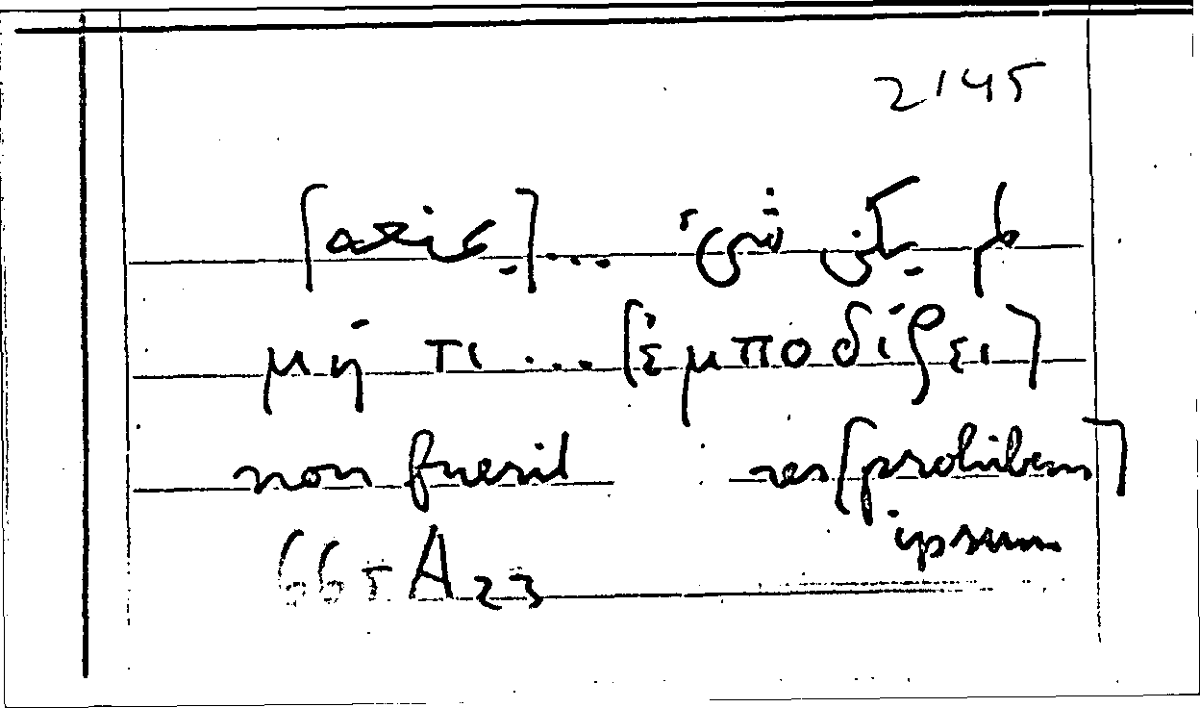 2145
لم يكن شىء ... [يمنعه]
μή τι ... [ἐμποδίζει]
non fuerit res [prohibens]
ipsum
665 A 23